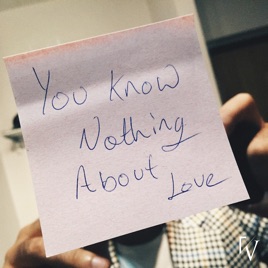 You Know
Nothing
About
Love